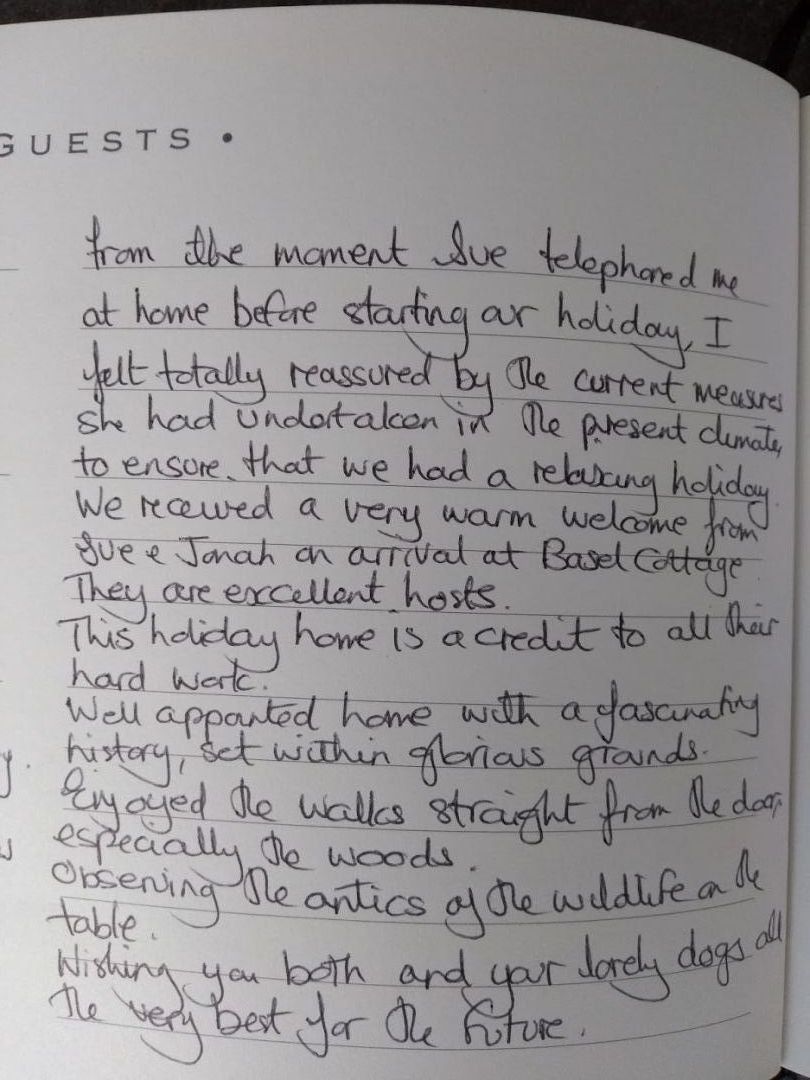 GUESTS •
from the moment Sue telephoned me
at home before starting our holiday, I
felt totally reassured by the current measures
she had undertaken in the present climate,
to ensure that we had a relaxing holiday.
We received a very warm welcome from
Sue & Jonah on arrival at Basel Cottage
They are excellent hosts.
This holiday home is a credit to all their
hard work.
Well appointed home with a fascinating
history, set within glorious grounds.
Enjoyed the walks straight from the door,
especially the woods.
Observing the antics of the wildlife on the
table.
Wishing you both and your lovely dogs all
the very best for the future.